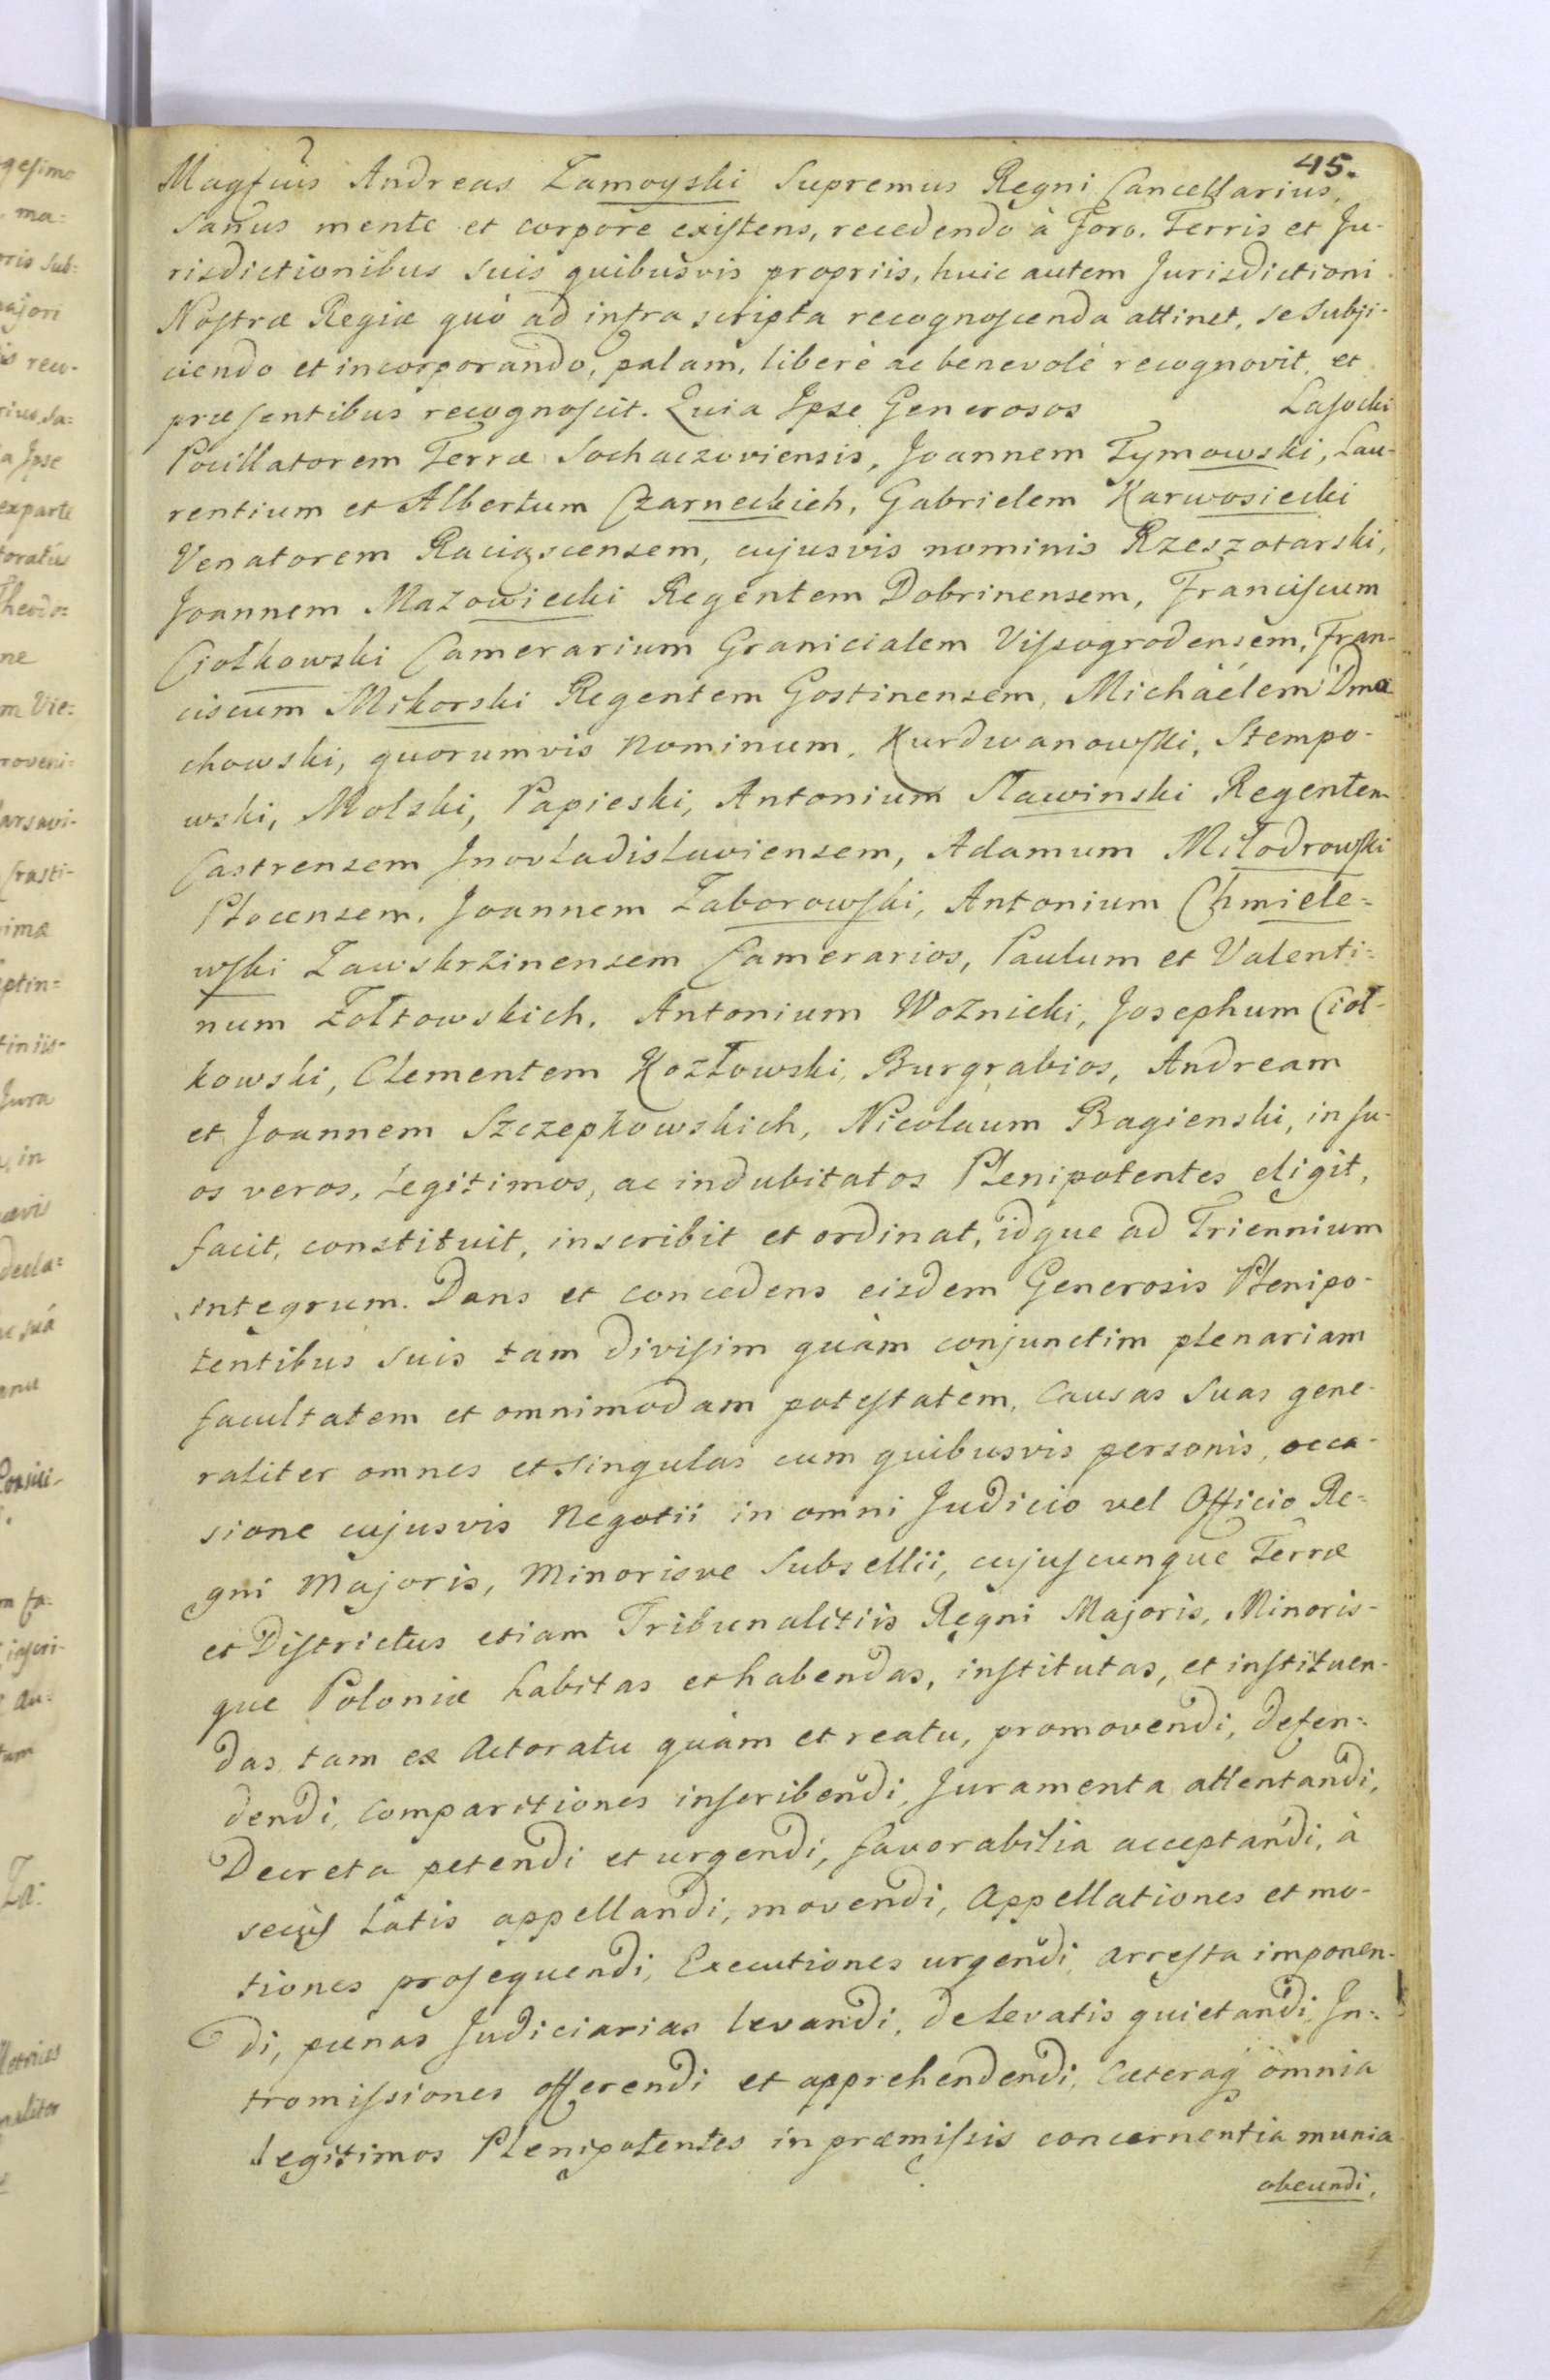 45.
Magfcus Andreas Zamoyski Supremus Regni Cancellarius,
Sanus mente et corpore existens, recedendo à Foro, Terris et Ju-
risdictionibus suis quibusvis propriis, huic autem Jurisdictioni
Nostræ Regiæ quò ad infra scripta recognoscenda attinet, se subji-
ciendo et incorporando, palam, liberè ac benevolè recognovit, et
præsentibus recognoscit. Quia Ipse Generosos Lasocki
Pocillatorem Terræ Sochaczoviensis, Joannem Tymowski, Lau-
rentium et Albertum Czarneckich, Gabrielem Karwosiecki
Venatorem Raciąscensem, cujusvis nominis Rzeszotarski,
Joannem Mazowiecki Regentem Dobrinensem, Franciscum
Ciołkowski Camerarium Granicialem Vissogrodensem, Fran-
ciscum Mikorski Regentem Gostinensem, Michäélem Dma
chowski, quorumvis Nominum, Kurdwanowski, Stempo-
wski, Molski, Papieski, Antonium Sławinski Regentem
Castrensem Inovladislaviensem, Adamum Miłodrowski
Plocensem, Joannem Zaborowski, Antonium Chmiele=
wski Zawskrzinensem Camerarios, Paulum et Valenti=
num Żołtowskich, Antonium Woznicki, Josephum Cioł-
kowski, Clementem Kozłowski, Burgrabios, Andream
et Joannem Szczepkowskich, Nicolaum Bagienski, in su-
os veros, Legitimos, ac indubitatos Plenipotentes eligit,
facit, constituit, inscribit et ordinat, idque ad Triennium
integrum. Dans et concedens eisdem Generosis Plenipo-
tentibus suis tam divisim quàm conjunctim plenariam
facultatem et omnimodam potestatem, Causas suas gene-
raliter omnes et singulas cum quibusvis personis, occa-
sione cujusvis Negotii in omni Judicio vel Officio Re=
gni Majoris, Minorisve Subsellii, cujuscunque Terræ
et Districtus etiam Tribunalitiis Regni Majoris, Minoris-
que Poloniæ habitas et habendas, institutas, et instituen-
das tam ex Actoratu quàm et reatu, promovendi, defen=
dendi, comparitiones inscribendi, Juramenta attentandi,
Decreta petendi et urgendi, favorabilia acceptandi, à
secus latis appellandi, movendi, Appellationes et mo-
tiones prosequendi, Executiones urgendi, arresta imponen-
di, pœnas Judiciarias levandi, de levatis quietandi, In=
tromissiones offerendi et apprehendendi, Cæteraq omnia
Legitimos Plenipotentes in præmissis concernentia munia
obeundi,